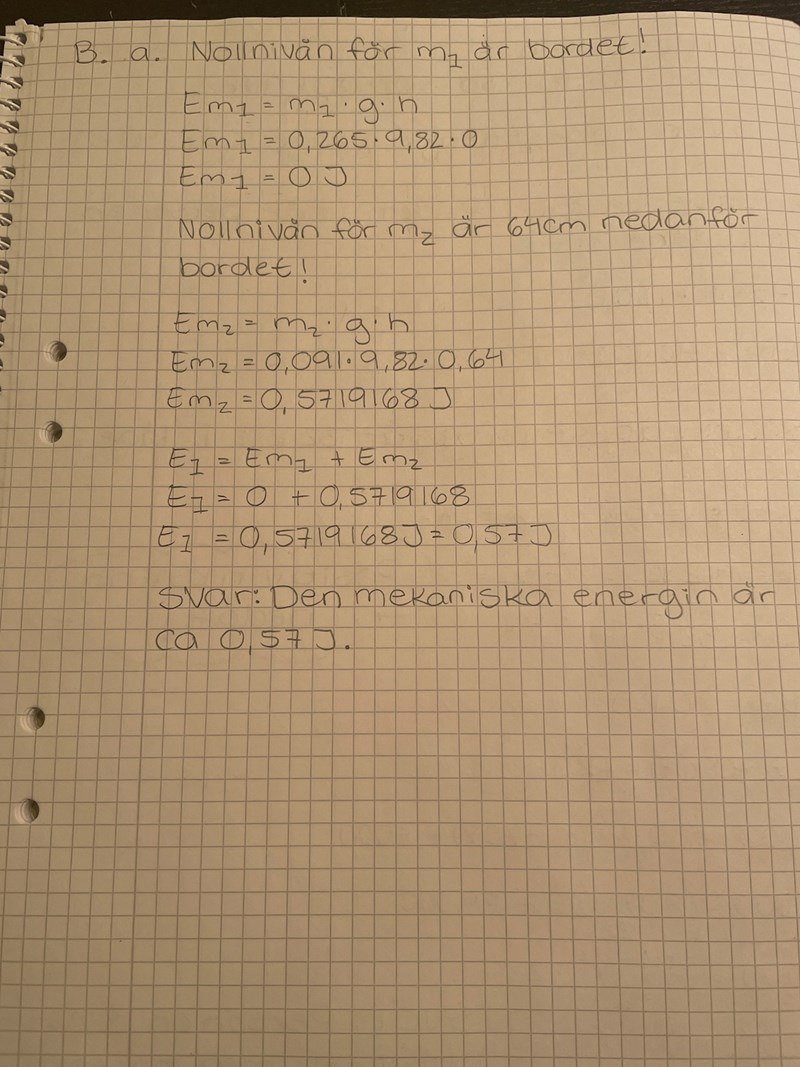 B. a. Nollnivån för m₁ är bordet!
Em₁ = m₁ · g · h
Em₁ = 0,265 · 9,82 · 0
Em₁ = 0 J
Nollnivån för m₂ är 64cm nedanför
bordet!
Em₂ = m₂ · g · h
Em₂ = 0,091 · 9,82 · 0,64
Em₂ = 0,5719168 J
E₁ = Em₁ + Em₂
E₁ = 0 + 0,5719168
E₁ = 0,5719168 J = 0,57 J
Svar: Den mekaniska energin är
ca 0,57 J.